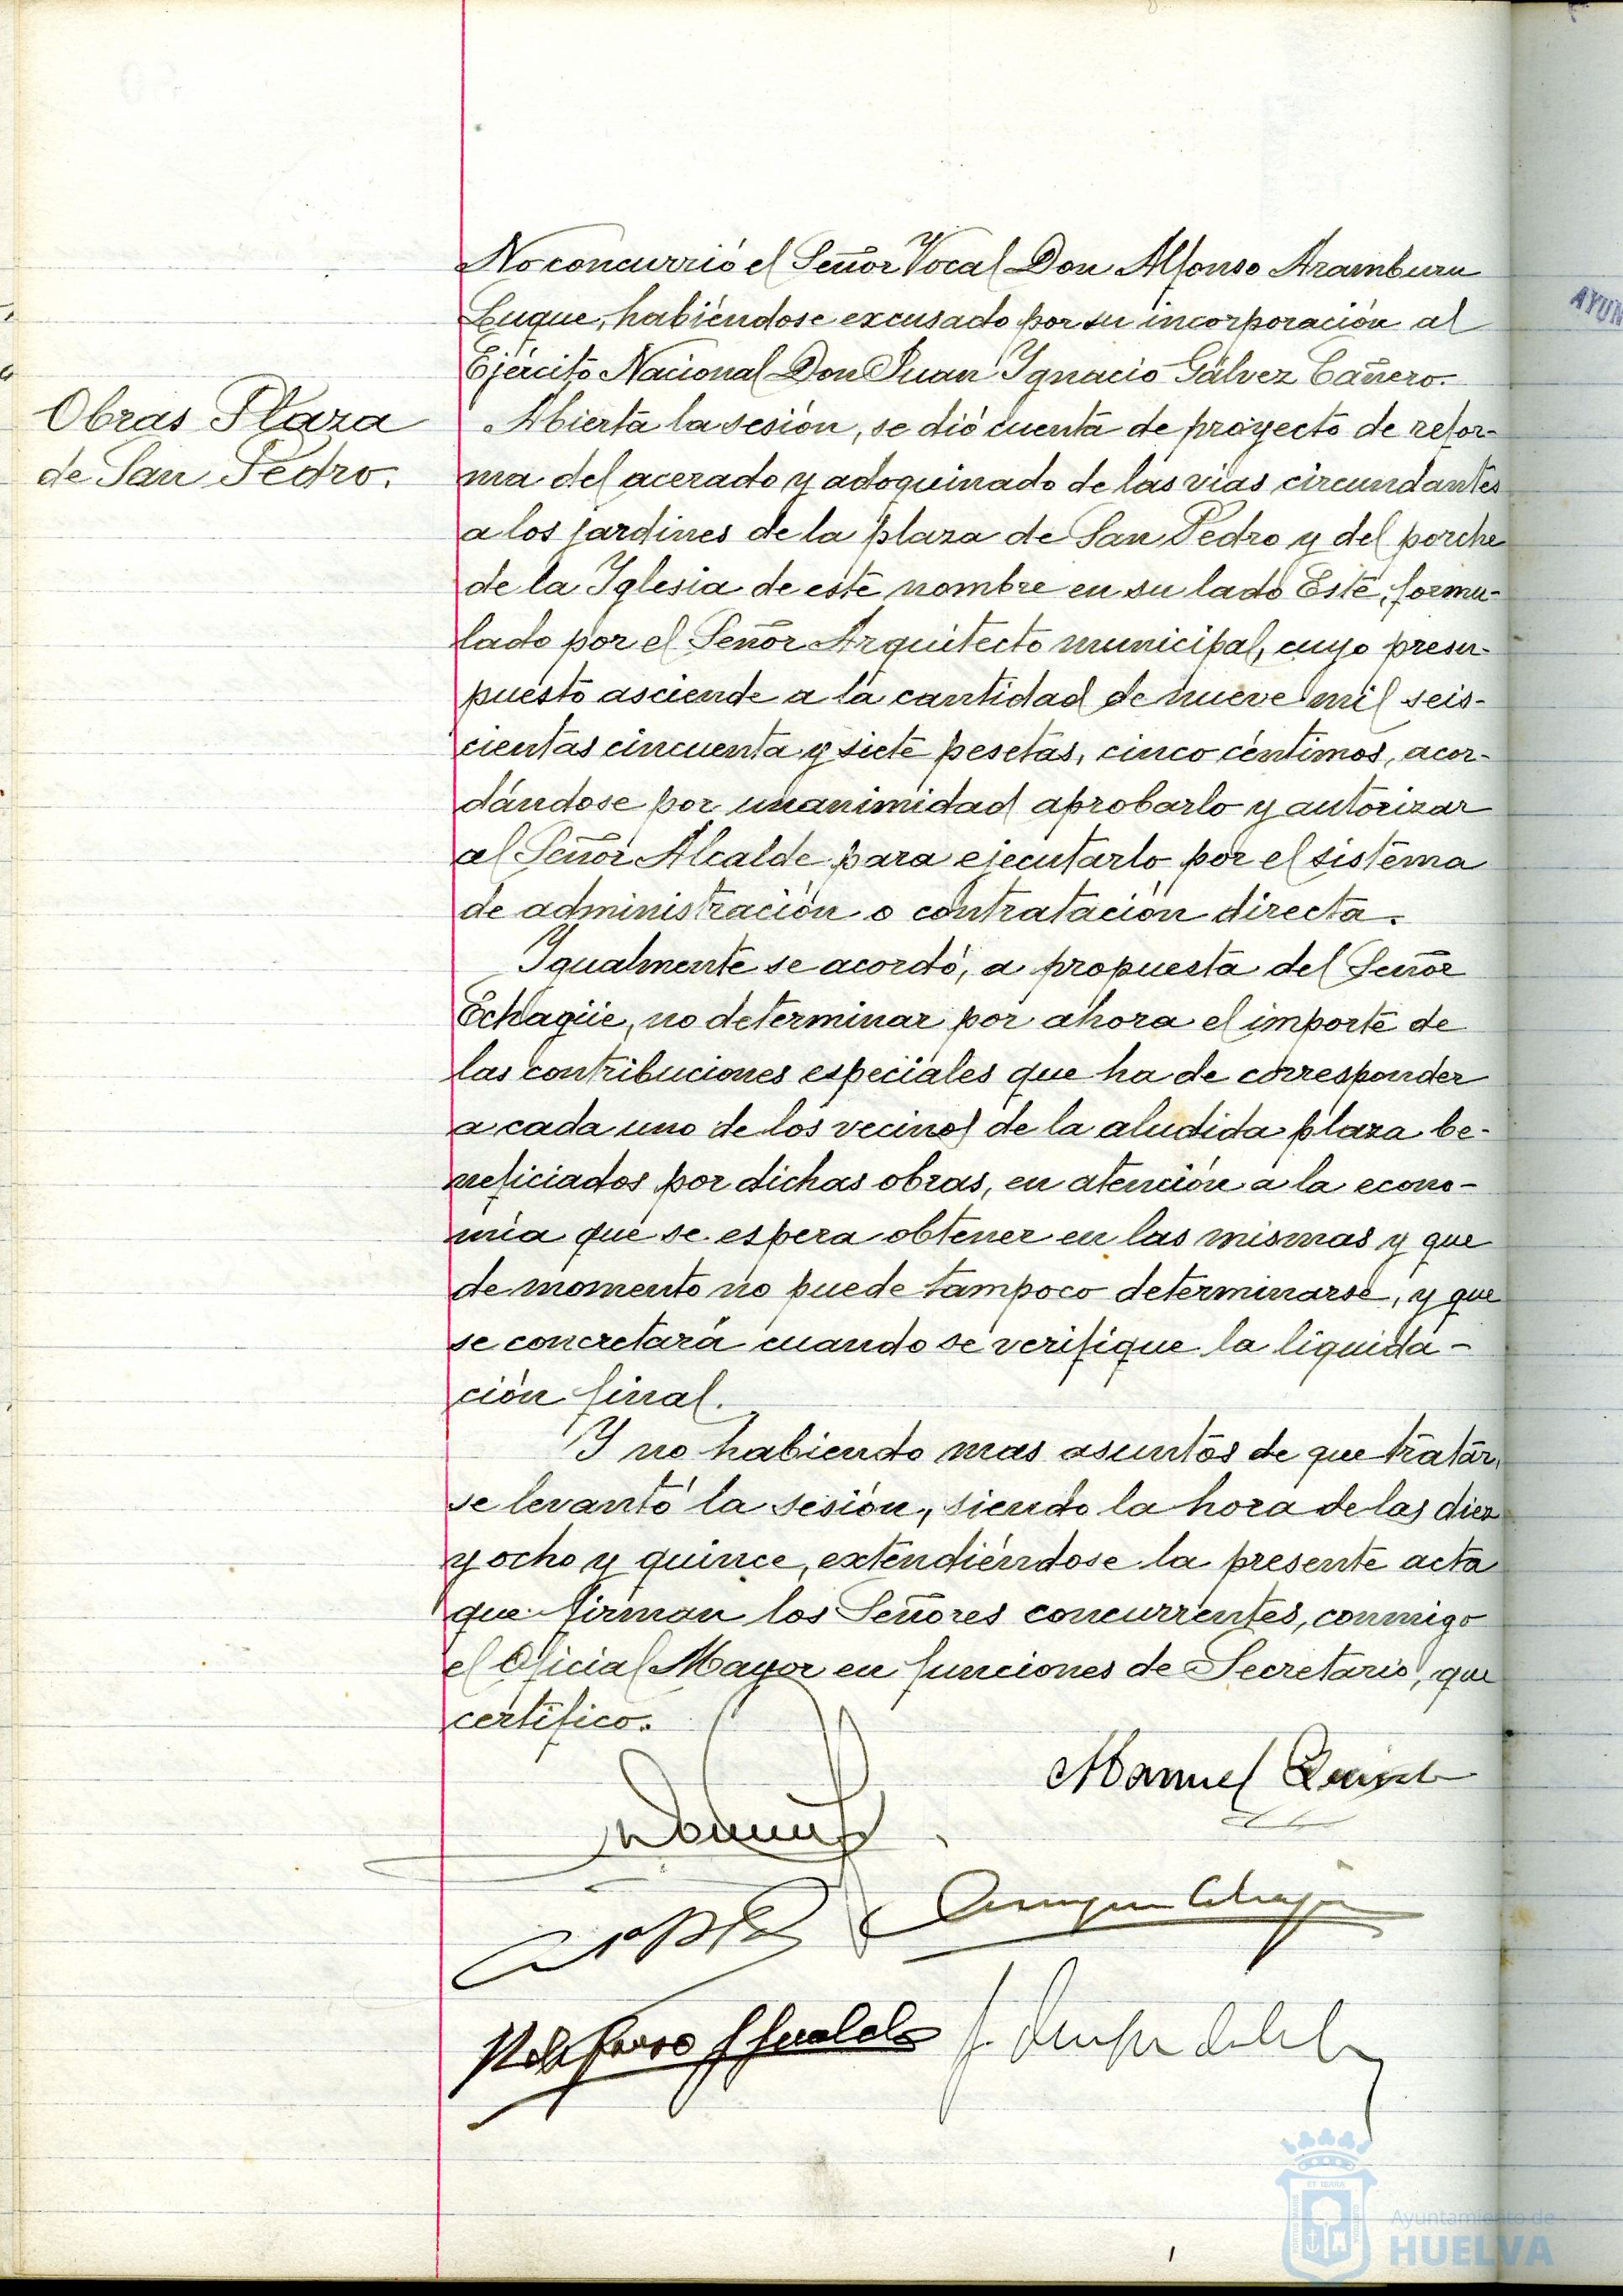 No concurrió el Señor Vocal Don Alfonso Aramburu
Luque, habiéndose excusado por su incorporación al
Ejército Nacional Don Juan Ignacio Gálvez Cañero.
Obras Plaza
de San Pedro.
Abierta la sesión, se dió cuenta de proyecto de refor-
ma del acerado y adoquinado de las vías circundantes
a los jardines de la plaza de San Pedro y del porche
de la Iglesia de este nombre en su lado Este, formu-
lado por el Señor Arquitecto municipal, cuyo presu-
puesto asciende a la cantidad de nueve mil seis-
cientas cincuenta y siete pesetas, cinco céntimos, acor-
dándose por unanimidad aprobarlo y autorizar
al Señor Alcalde para ejecutarlo por el sistema
de administración o contratación directa.
Igualmente se acordó, a propuesta del Señor
Echagüe, no determinar por ahora el importe de
las contribuciones especiales que ha de corresponder
a cada uno de los vecinos de la aludida plaza be-
neficiados por dichas obras, en atención a la econo-
mía que se espera obtener en las mismas y que
de momento no puede tampoco determinarse, y que
se concretará cuando se verifique la liquida-
ción final.
Y no habiendo mas asuntos de que tratar,
se levantó la sesión, siendo la hora de las diez
y ocho y quince, extendiéndose la presente acta
que firman los Señores concurrentes, conmigo
el Oficial Mayor en funciones de Secretario, que
certifico.
Manuel
AYUN
Ayuntamiento de
HUELVA